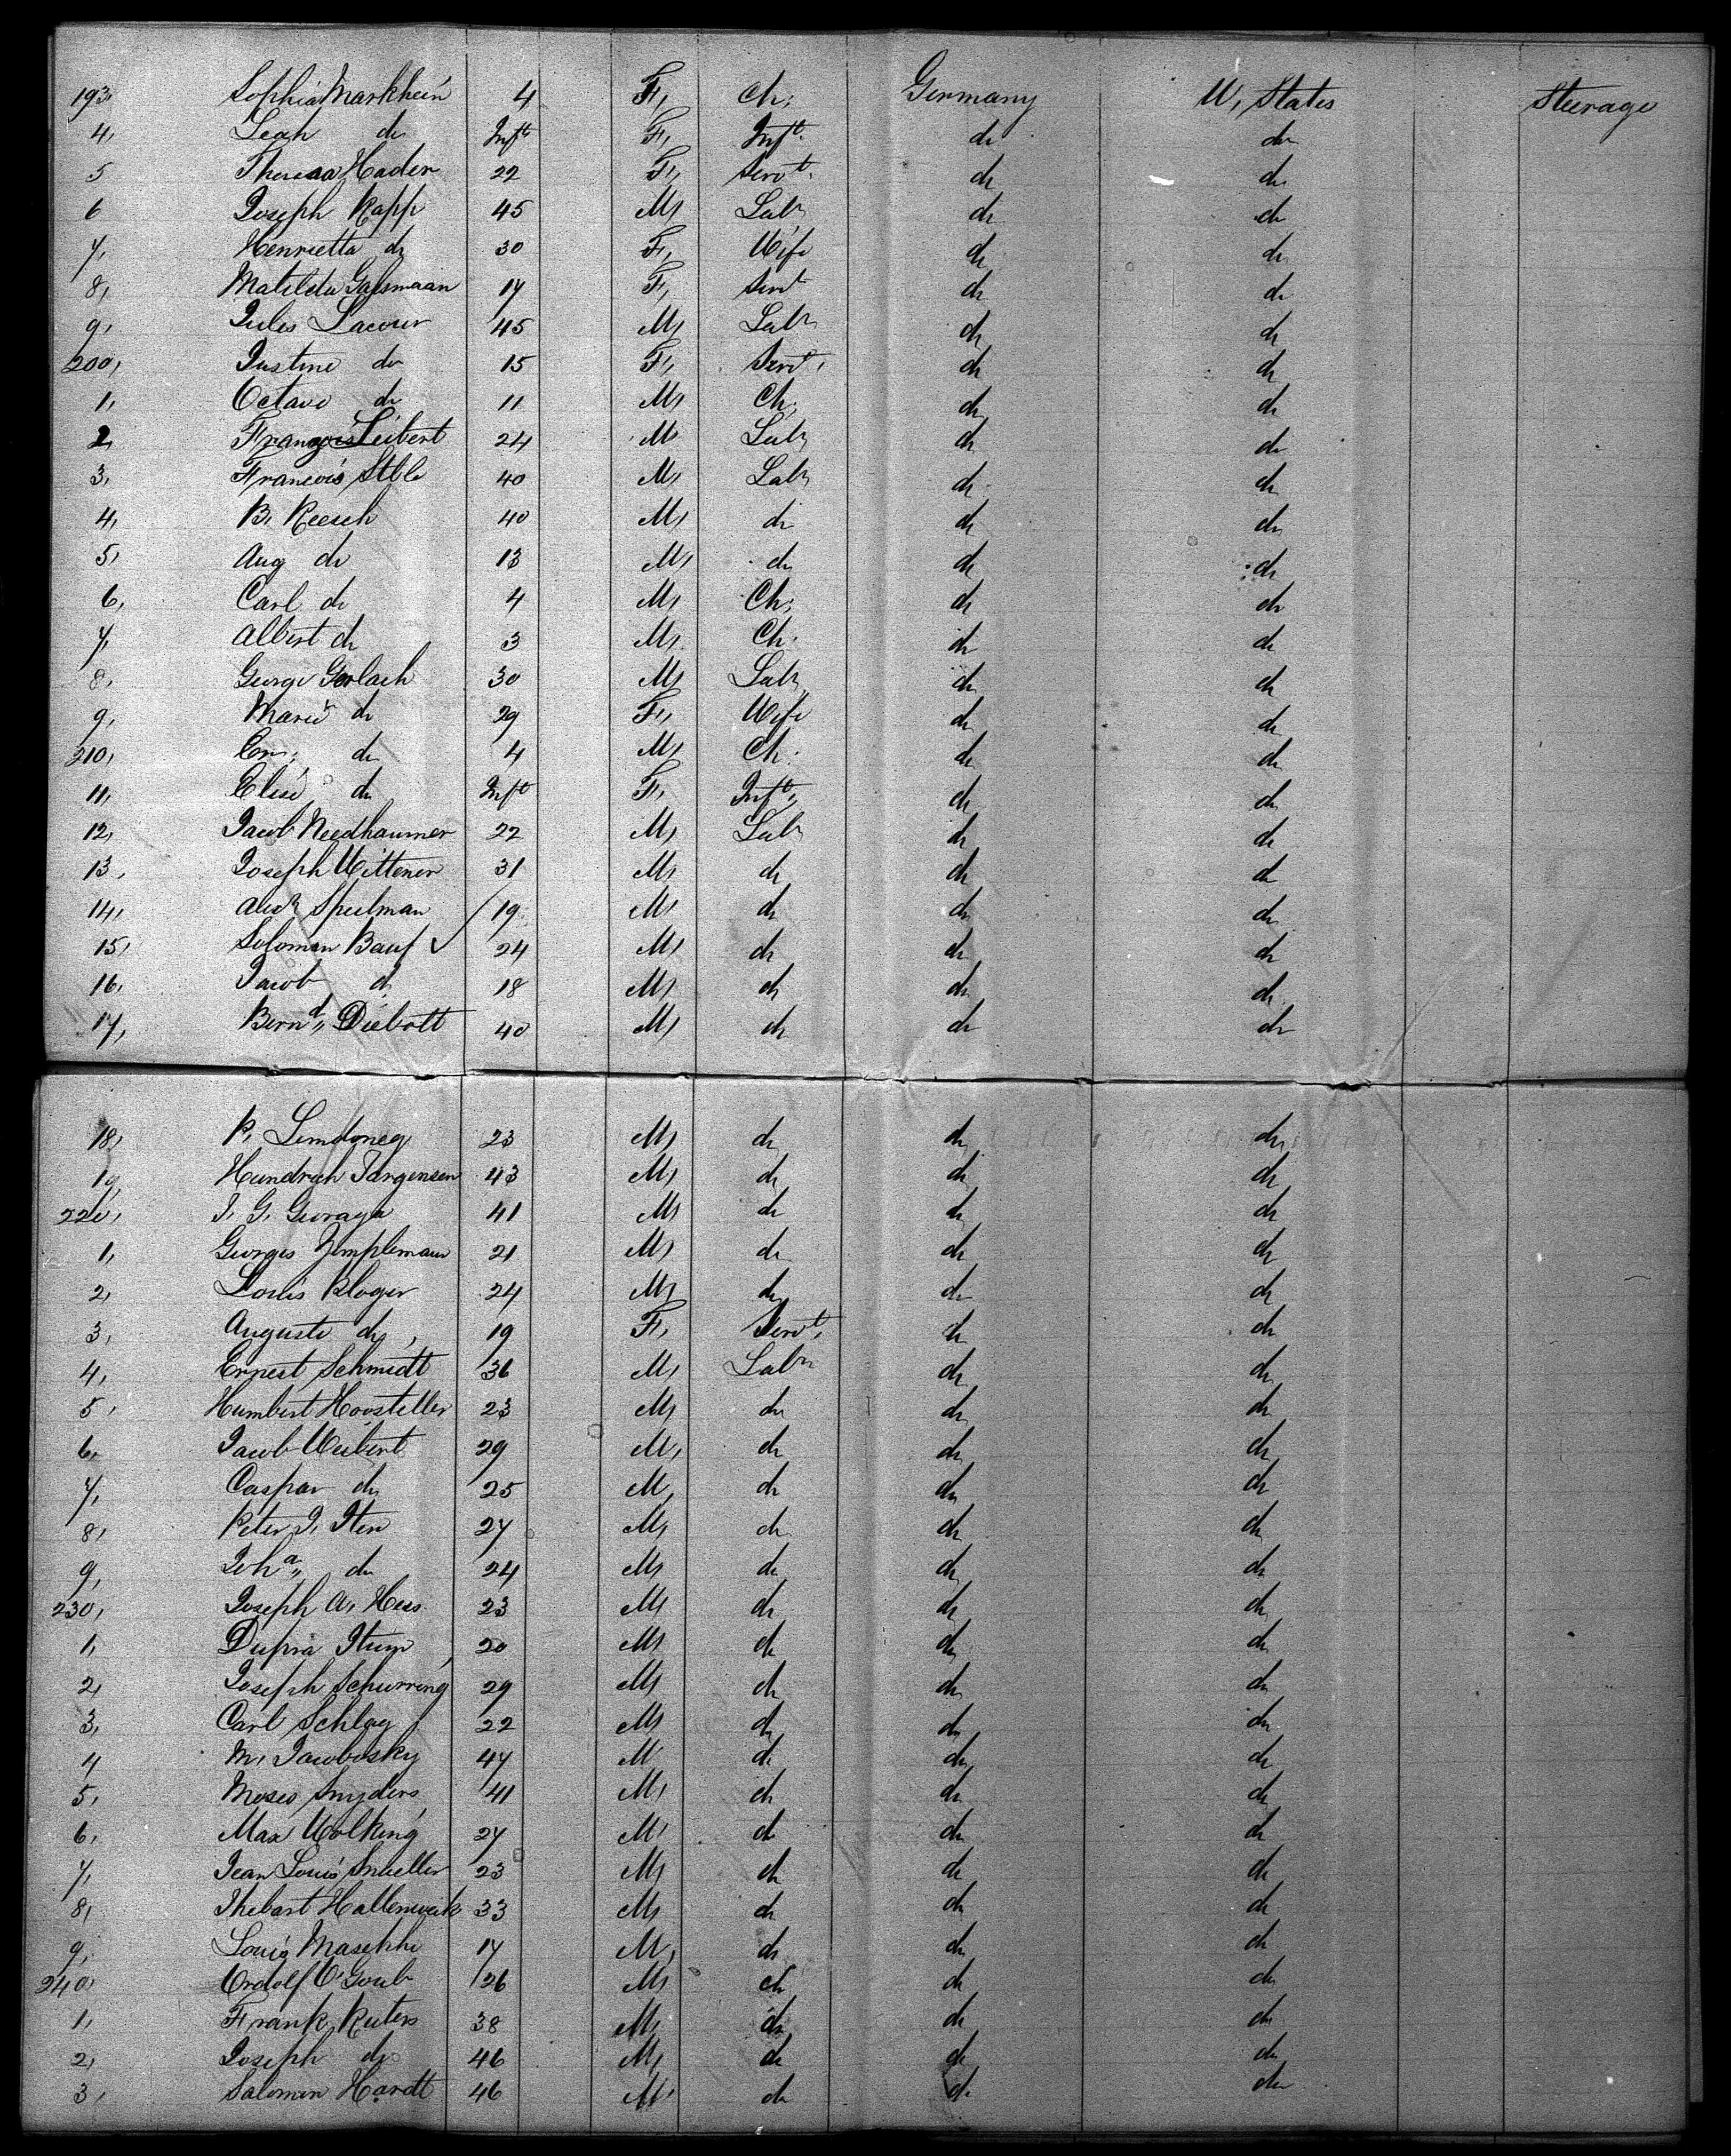 193, Sophia Markhein 4 F, Ch, Germany U, States Steerage
4, Leah do Inft F, Inft. do do
5 Theresa Hader 22 F, Servt. do do
6 Joseph Rapp 45 M, Labr do do
7, Henrietta do 30 F, Wife do do
8, Matilda 17 F, Servt do do
9, Jules Lacour 45 M, Labr do do
200, Justine do 15 F, Servt, do do
1, Octave do 11 M, Ch, do do
2, Leibert 24 M Labr do do
3, Francois 40 M, Labr do do
4, B, Reesch 40 M, do do do
5, Aug do 13 M, do do do
6, Carl do 4 M, Ch, do do
7, Albert do 3 M, Ch, do do
8, George Gerlach 30 M, Labr do do
9, Marie do 29 F, Wife do do
210, do 4 M, Ch, do do
11, Elise do Inft F, Inft, do do
12, Jacob Needhaumer 22 M, Labr do do
13, Joseph Wittener 31 M, do do do
14, Alexr Speelman 19 M, do do do
15, Solomon Bauf 24 M, do do do
16, Jacob do 18 M, do do do
17, Bernd,, Diebolt 40 M, do do do
18, P, 23 M, do do do
19, Hendrich Jorgensen 43 M, do do do
220, J, G, 41 M, do do do
1, Georges 21 M, do do do
2, Louis Kloger 24 M, do do do
3, Auguste do, 19 F, Servt, do do
4, Ernest Schmidt 36 M, Labr do do
5, Humbert Hoosteller 23 M, do do do
6, Jacob Weibert 29 M, do do do
7, Caspar do 25 M, do do do
8, Peter J, Iten 27 M, do do do
9, Joha,, do 24 M, do do do
230, Joseph A, Hess 23 M, do do do
1, Itum 20 M, do do do
2, Joseph Schurring 29 M, do do do
3, Carl Schlag 22 M, do do do
4 M, Jacobosky 47 M do do do
5, Moses Snyders 41 M, do do do
6, Max Wolking 27 M, do do do
7, Jean Louis Smeller 23 M, do do do
8, Thebart Hallenweck 33 M, do do do
9, Louis Masephe 17 M, do do do
240, 26 M, do do do
1, Frank Ruters 38 M, do do do
2, Joseph do 46 M, do do do
3, Salomon Hardt 46 M, do do do